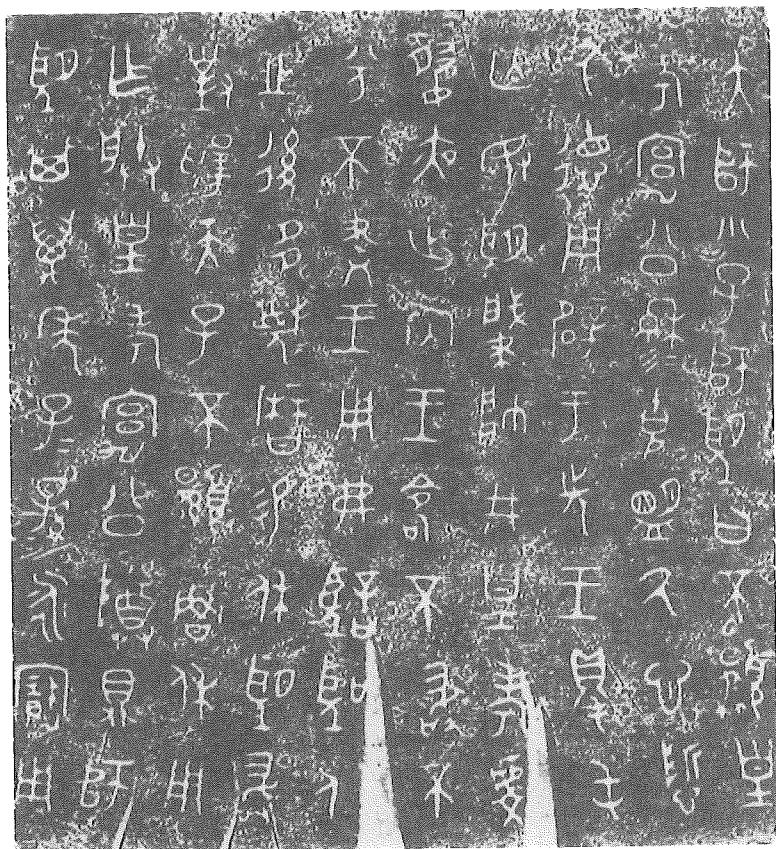 大師小子師望曰不顯皇
考宄公穆=克盟氒心悊
氒德用辟于先王得屯
亡敃望肈帥井皇考虔
夙夜出內王命不敢不
分不王用弗聖人
之後多蔑曆易休望敢
對揚天子不顯魯休用
乍朕皇考宄公尊鼎師
望其萬年子=孫=永寶用